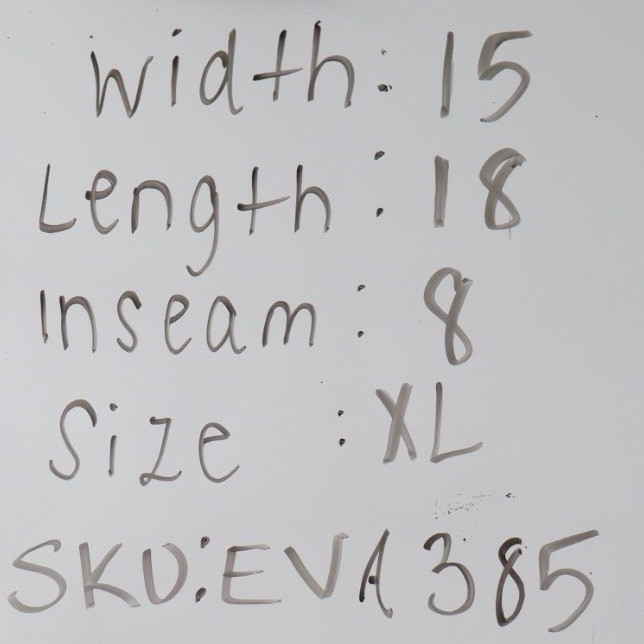 Width: 15
Length: 18
Inseam: 8
Size : XL
SKU: EVA 385